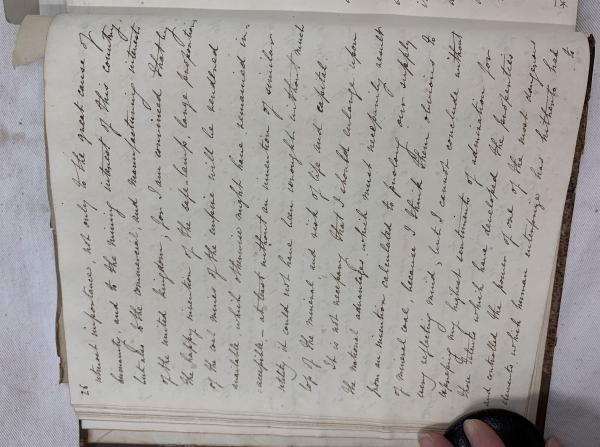 26
utmost importance not only to the great cause of
humanity, and to the mining interest of this country,
but also to the commercial, and manufacturing interests
of the united kingdom; for I am convinced that by
the happy invention of the safe-lamp large proportions
of the coal mines of the empire will be rendered
available, which otherwise might have remained in-
accessible – at least without an invention of similar
utility, it could not have been wrought without much
loss of the mineral and risk of life and capital.
It is not necessary that I should enlarge upon
the national advantages which must necessarily result
from an invention calculated to prolong our supply
of mineral coal, because I think them obvious to
every reflecting mind; but I cannot conclude without
expressing my highest sentiments of admiration for
those talents which have developed the properties
and controlled the power of one of the most dangerous
elements which human enterprize has hitherto had
to